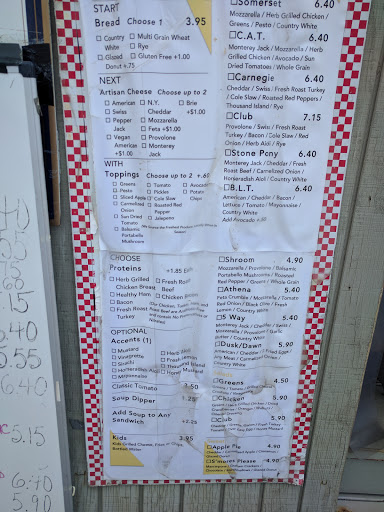 START
Bread Choose 1 3.95
Country White
Multi Grain Wheat
Rye
Glazed Donut +.75
Gluten Free +1.00
NEXT
Artisan Cheese Choose up to 2
American
Swiss
Pepper Jack
Vegan American +$1.00
N.Y. Cheddar
Mozzarella
Feta +$1.00
Provolone
Monterey Jack
Brie +$1.00
WITH
Toppings Choose up to 2 +.60
Greens
Pesto
Sliced Apple
Carmelized Onion
Sun Dried Tomato
Balsamic Portabella Mushroom
Tomato
Pickles
Cole Slaw
Roasted Red Pepper
Jalapeno
Avocado
Potato Chips
CHOOSE
Proteins +1.85 Each
Herb Grilled Chicken Breast
Healthy Ham
Bacon
Fresh Roast Turkey
Fresh Roast Beef
Chicken Breast
OPTIONAL
Accents (1)
Mustard
Vinaigrette
Sriachi
Horseradish Aioli
Mayonnaise
Herb Aioli
Fresh Lemon
Thousand Island
Honey Mustard
Classic Tomato 3.50
Soup Dipper 1.25
Add Soup to Any
Sandwich +2.25
Kids 3.95
Kids Grilled Cheese, Fries or Chips
Bottled Water
Somerset 6.40
Mozzarella / Herb Grilled Chicken
/ Greens / Pesto / Country White
C.A.T. 6.40
Monterey Jack / Mozzarella / Herb
Grilled Chicken / Avocado / Sun
Dried Tomatoes / Whole Grain
Carnegie 6.40
Cheddar / Swiss / Fresh Roast Turkey
/ Cole Slaw / Roasted Red Peppers /
Thousand Island / Rye
Club 7.15
Provolone / Swiss / Fresh Roast
Turkey / Bacon / Cole Slaw / Red
Onion / Herb Aioli / Rye
Stone Pony 6.40
Monterey Jack / Cheddar / Fresh
Roast Beef / Carmelized Onion /
Horseradish Aioli / Country White
B.L.T. 6.40
American / Bacon /
Lettuce / Tomato / Mayonnaise /
Country White
Add Avocado
Shroom 4.90
Mozzarella / Provolone / Balsamic
Portabello Mushrooms / Roasted
Red Pepper / Whole Grain
Athena 5.40
Feta Crumble / Mozzarella / Tomato
Red Onion / Black Olive / Fresh
Lemon / Country White
5 Way 5.40
Monterey Jack / Cheddar / Swiss /
Mozzarella / Provolone / Garlic
Butter / Country White
Dusk/Dawn 5.90
American / Cheddar / Fried Eggs /
Any Meat / Carmelized Onion /
Country White
Greens 4.50
Chicken 5.90
Club 5.90
Apple Pie 4.90
S'mores Please 4.90
5.15
5.90